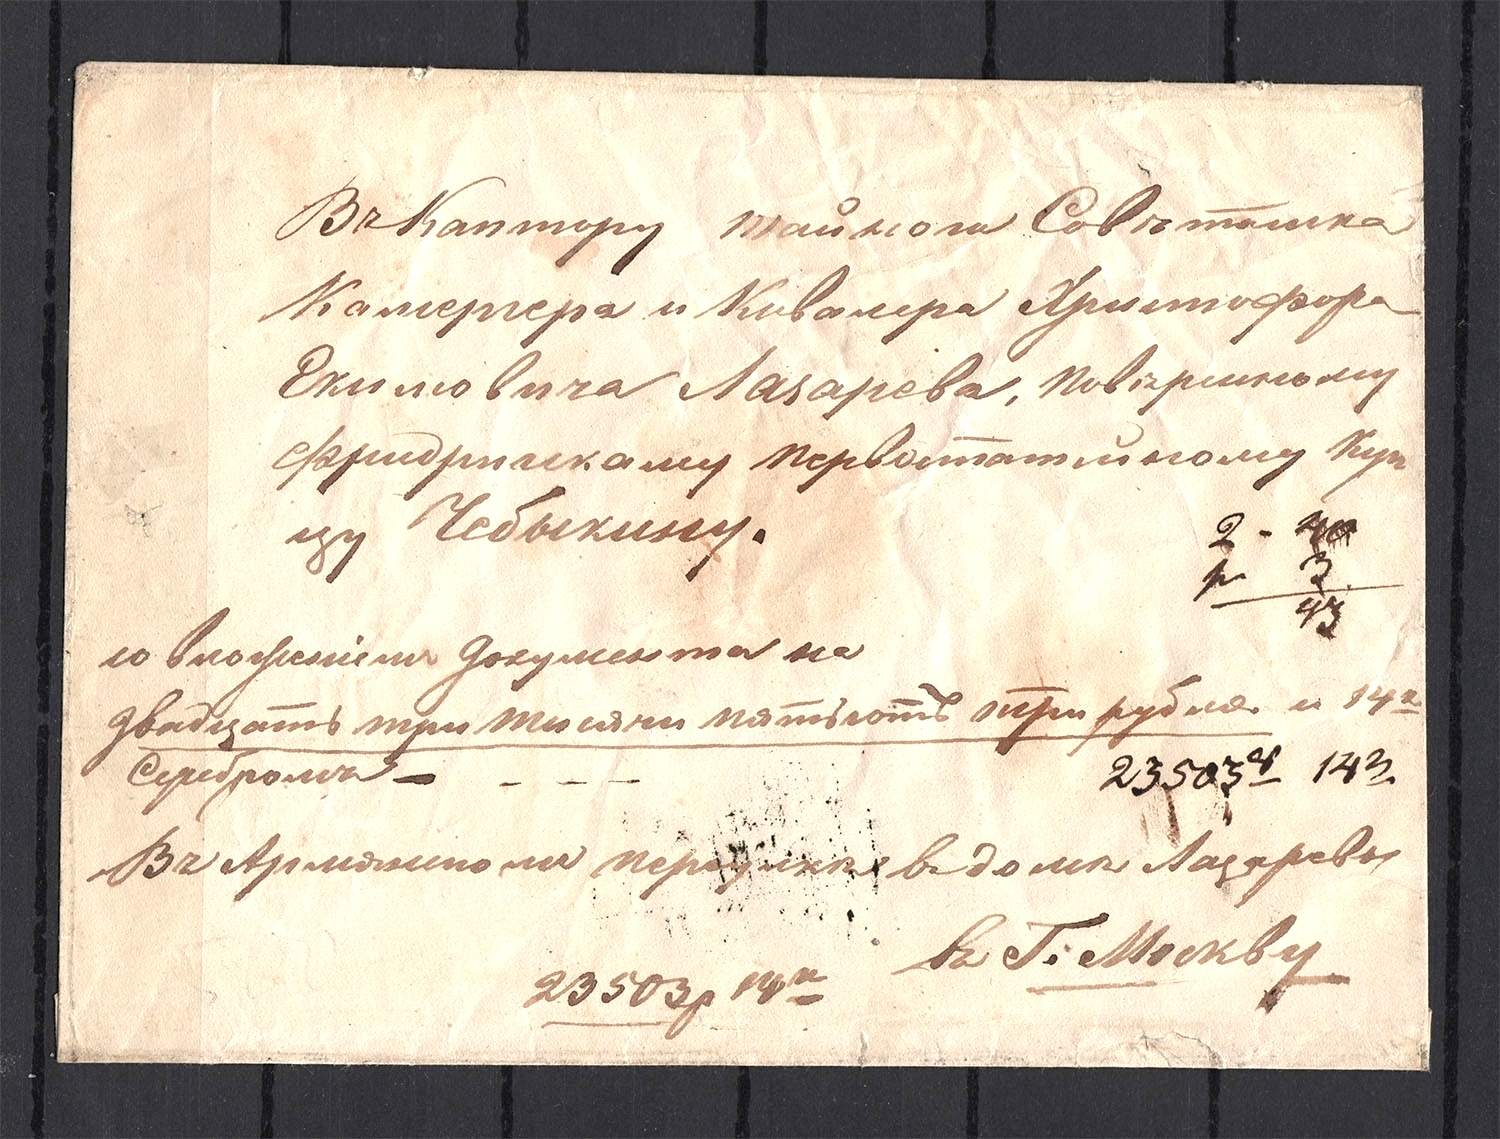 Въ Кантору тайнога Совѣтника
Камергера и Кавалера Христофора
Екимовича Лазарева, повѣренному
Фридрихскому первостатийному Куп
цу Чебыкину.
2 - 40
р 3
43
со вложеніемъ документа на
двадцать три тысячи пятьсотъ три рубля и 14 к
Серебромъ
23503 14
Въ Армянскомъ переулкѣ въ домѣ Лазаревы
въ Г. Москву
23503р 14 к